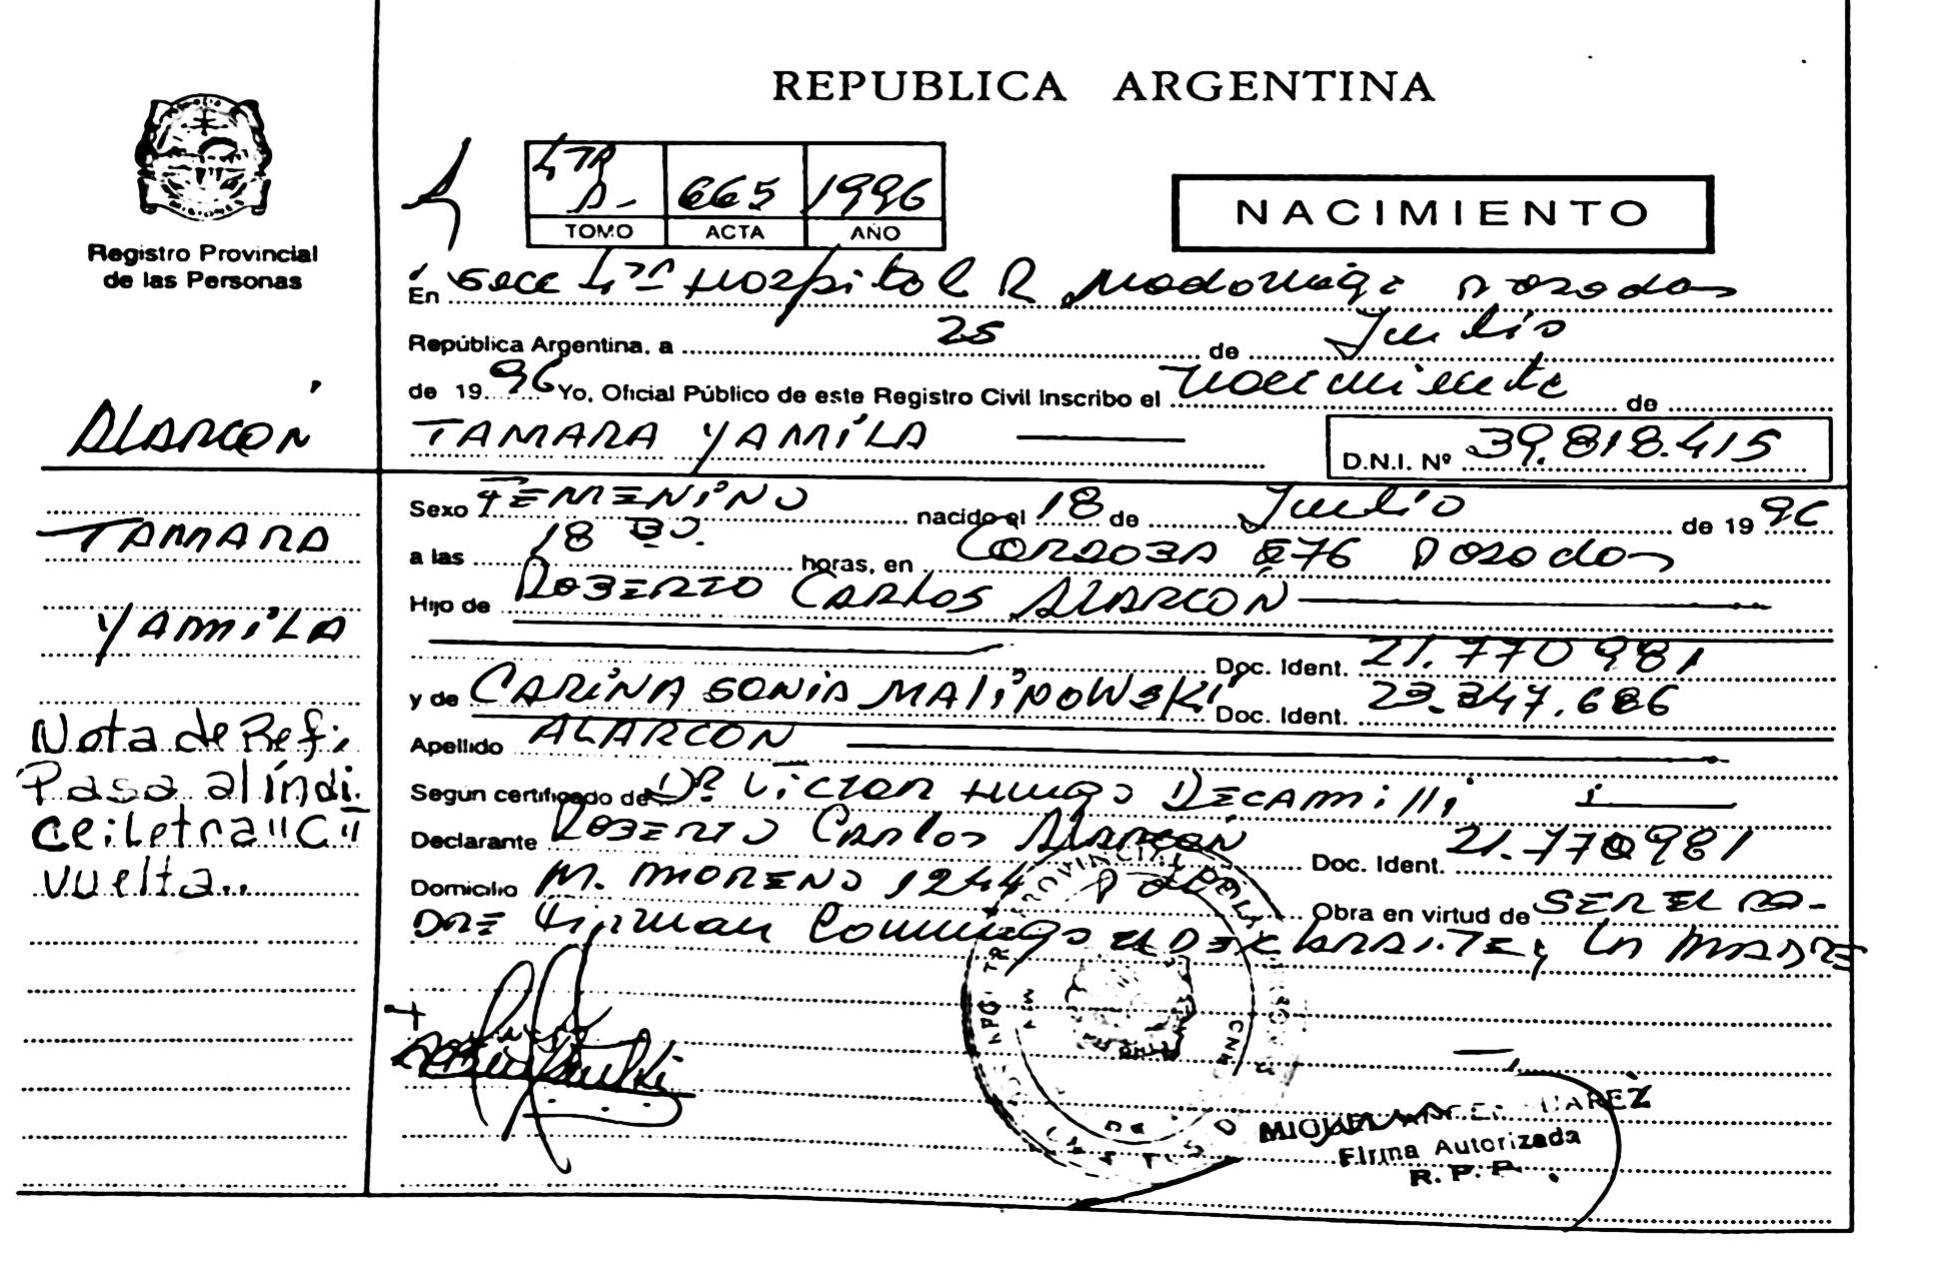 REPUBLICA ARGENTINA
Registro Provincial
de las Personas
665 1996
TOMO ACTA AÑO
NACIMIENTO
En Secc Hospital R Madariaga Posadas
República Argentina, a 25 de Julio
de 1996 Yo, Oficial Público de este Registro Civil Inscribo el nacimiento de
ALARCÓN
TAMARA YAMILA
D.N.I. Nº 39.818.415
Sexo FEMENINO nacido el 18 de Julio de 1996
TAMARA
a las 18 horas, en CORDOBA Posadas
Hijo de ROBERTO CARLOS ALARCON
YAMILA
Doc. Ident. 21.770981
y de CARINA SONIA MALINOWSKI Doc. Ident. 23.347.686
Apellido ALARCON
Nota de Ref:
Pasa al índi
ce: Letra "C"
vuelta..
Según certificado de Dr. Victor Hugo DECAMILLI
Declarante ROBERTO CARLOS ALARCÓN Doc. Ident. 21.770981
Domicilio M. MORENO 1244 Obra en virtud de SER EL PA-
DRE Firman Conmigo el DECLARANTE y LA MADRE
MIGUEL SUAREZ
Firma Autorizada
R. P. P.